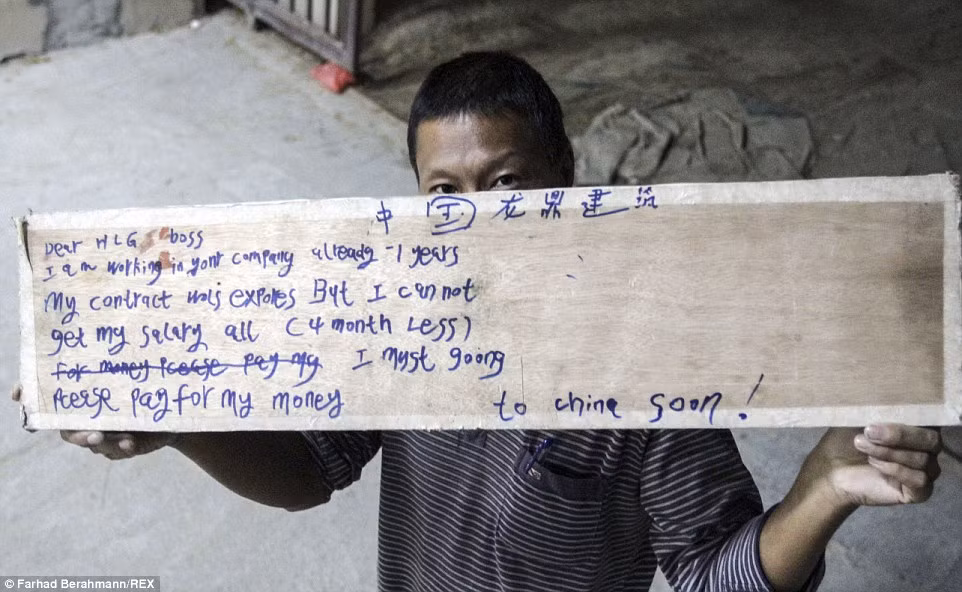 中国龙鼎建筑
Dear HLG boss
I am working in yonr company allready -1 years
My contract But I can not
get my salary all (4 month Less)
For money Please pay my I myst goong
Please pay for my money to china soon!
© Farhad Berahmann/REX